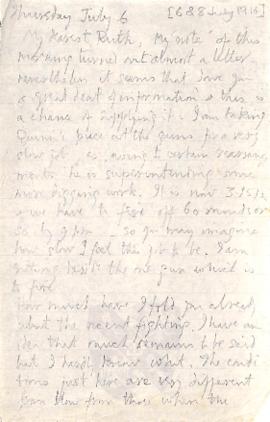 Thursday July 6 [6 & 8 July 1916]
My dearest Ruth, My note of this
morning turned out almost a letter -
nevertheless it seems that I owe you
a great deal of information & this is
a chance of supplying it. I am taking
Quinn's place at the guns for a very
slow job, as, owing to certain rearrange
ments he is superintending some
more digging work. It is now 3.15
& we have to fire off 60 rounds or
so by 9 pm - so you may imagine
how slow I feel the job to be. I am
sitting beside the one gun which is
to fire.
How much have I told you already
about the recent fighting. I have an
idea that much remains to be said
but I hardly know what. The condi
tions just here are very different
from those when the